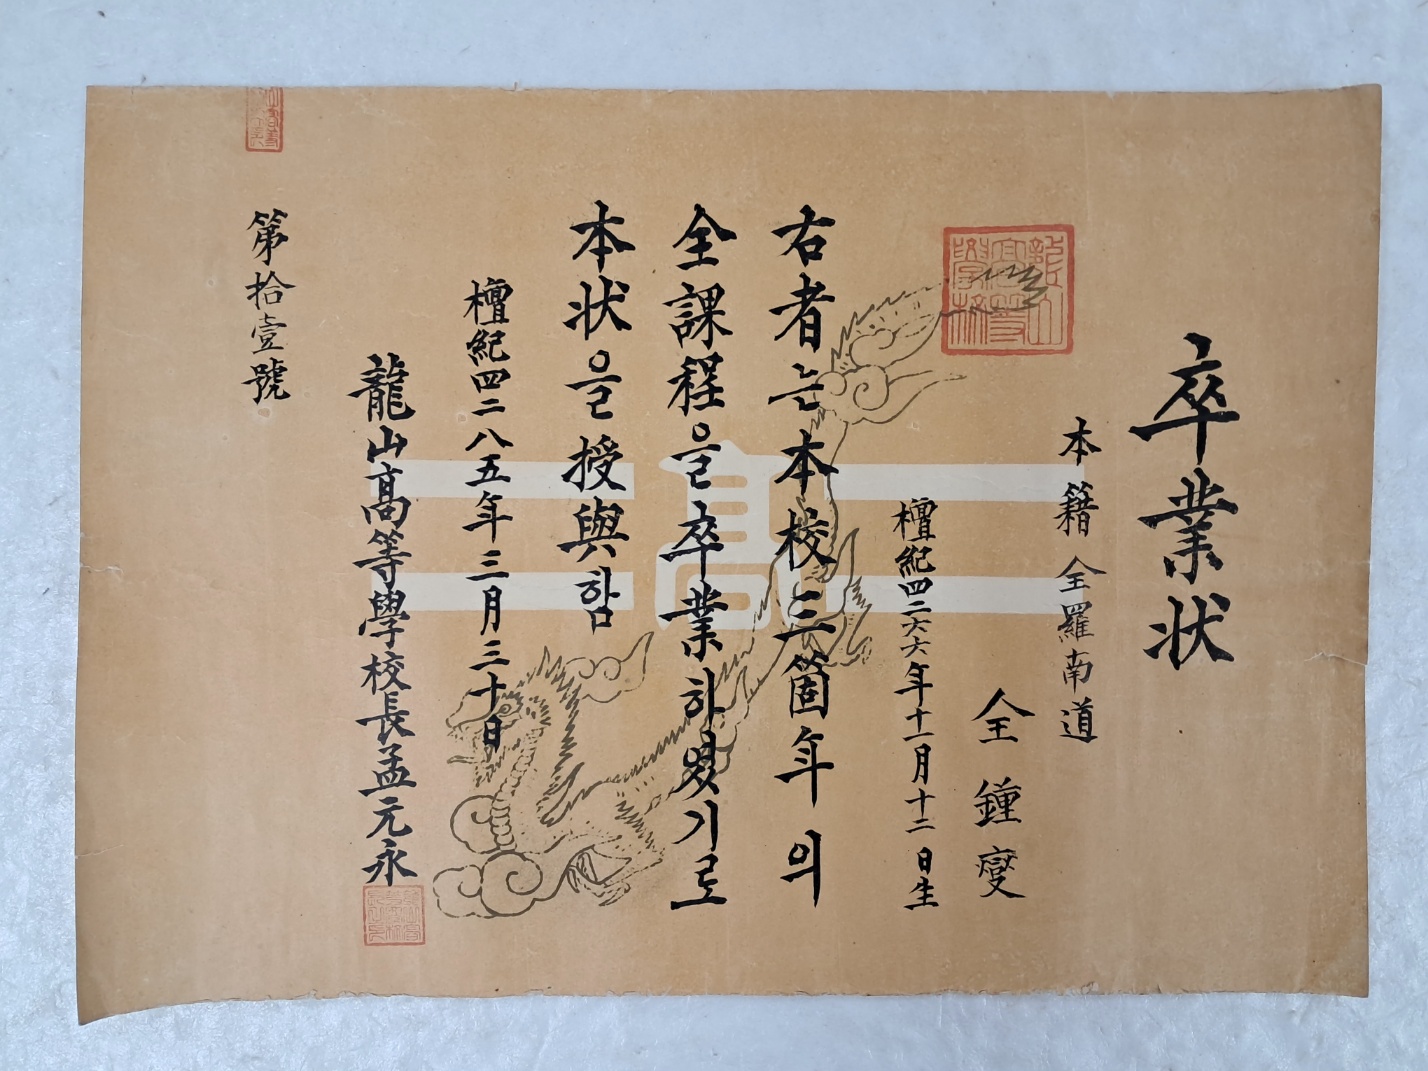 卒業状
本籍 全羅南道
全鍾燮
檀紀四二六六年十一月十二日生
右者는本校三箇年의
全課程을卒業하였기로
本状을授與함
檀紀四二八五年三月三十日
龍山高等學校長孟元永
第拾壹號
高